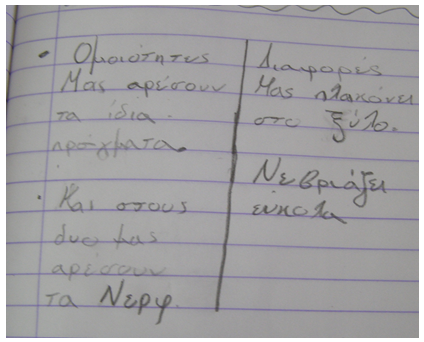 • Ομοιότητες
Μας αρέσουν
τα ίδια
πράγματα.
• Και στους
δυο μας
αρέσουν
τα Νερφ.
Διαφορές
Μας πλακόνει
στο ξύλο.
Νεβριάζει
εύκολα